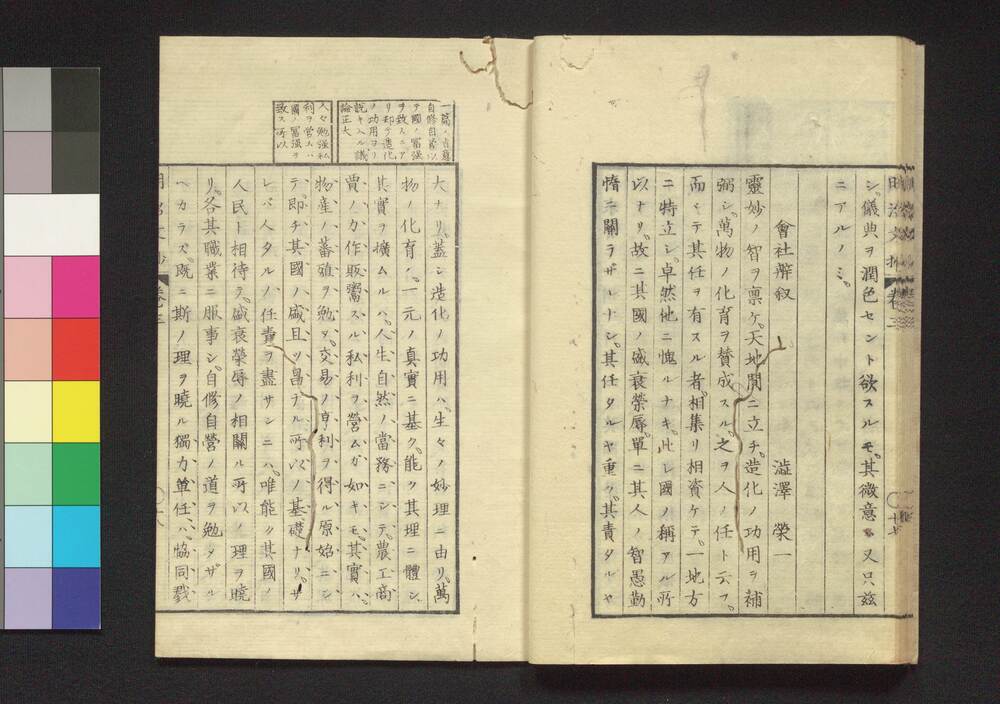 シ、儀典ヲ潤色セント欲スルモ、其微意ヽ又只玆
ニアルノミ。
會社辯叙
澁澤榮一
靈妙ノ智ヲ禀ケ、天地間ニ立チ、造化ノ功用ヲ補
弼シ、萬物ノ化育ヲ賛成スル。之ヲ人ノ任ト云フ。
而〆テ其任ヲ有スル者、相集リ相資ケテ、一地方
ニ特立シ、卓然他ニ愧ルナキ、此レ國ノ稱アル所
以ナリ。故ニ其國ノ盛衰榮辱、單ニ其人ノ智愚勤
惰ニ關ラザレナシ。其任タルヤ重ク、其責タルヤ
一篇ノ大意
自修自營以
テ國ノ冨強
ヲ致スニア
リ却テ造化
ノ功用ヨリ
説キ入ル議
論正大
大ナリ。蓋シ造化ノ功用ハ、生々ノ妙理ニ由リ、萬
物ノ化育ノ、一元ノ真實ニ基ク。能ク其理ニ體シ、
其實ヲ擴ムルハ、人生自然ノ當務ニシテ、農工商
人々勉強私
利ヲ營ムハ
國ノ冨強ヲ
致ス所以
賈ノ力作販鬻スル私利ヲ營ムガ如キモ、其實ハ、
物産ノ蕃殖ヲ勉メ、交易ノ亨利ヲ得ル原始ニシ
テ、即チ其國ノ盛且ツ昌ナル所以ノ基礎ナリ。サ
レバ人タルノ任責ヲ盡サンニハ、唯能ク其國ノ
人民ト相待テ、盛衰榮辱ノ相關ル所以ノ理ヲ曉
リ、各其職業ニ服事シ、自修自營ノ道ヲ勉メザル
ヘカラズ。既ニ斯ノ理ヲ曉ル獨力単任ハ、協同戮